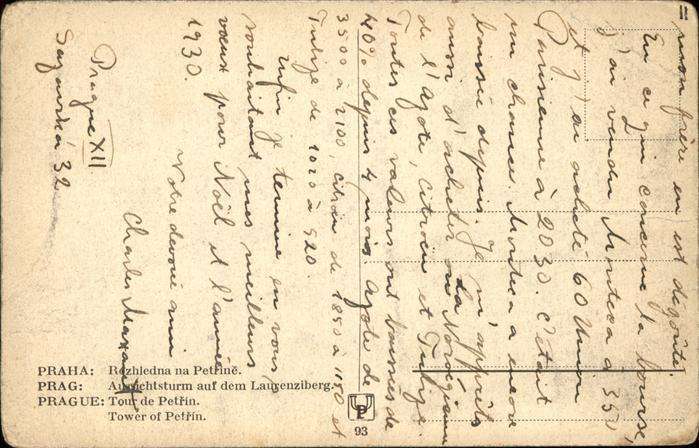 mon frère en est dégoûté.
En ce qui concerne la bourse,
j'ai vendu Monteca à 350
et j'ai acheté 60 Union
Parisienne à 2030. C'était
ma chance. Monteca a encore
baissé depuis. Je m'apprête
aussi d'acheter la Norvégienne
de l'Azote, Citroën et Tubize.
Toutes ces valeurs ont baissé de
40% depuis 4 mois, Azote de
3500 à 2100, Citroën de 1850 à 1150 et
Tubize de 1020 à 520.
Enfin je termine en vous
souhaitant mes meilleurs
vœux pour Noël et l'année
1930.
Votre dévoué ami
Charles
Prague XII
Sázavská 32
PRAHA: Rozhledna na Petříně.
PRAG: Aussichtsturm auf dem Laurenziberg.
PRAGUE: Tour de Petřín.
Tower of Petřín.
93